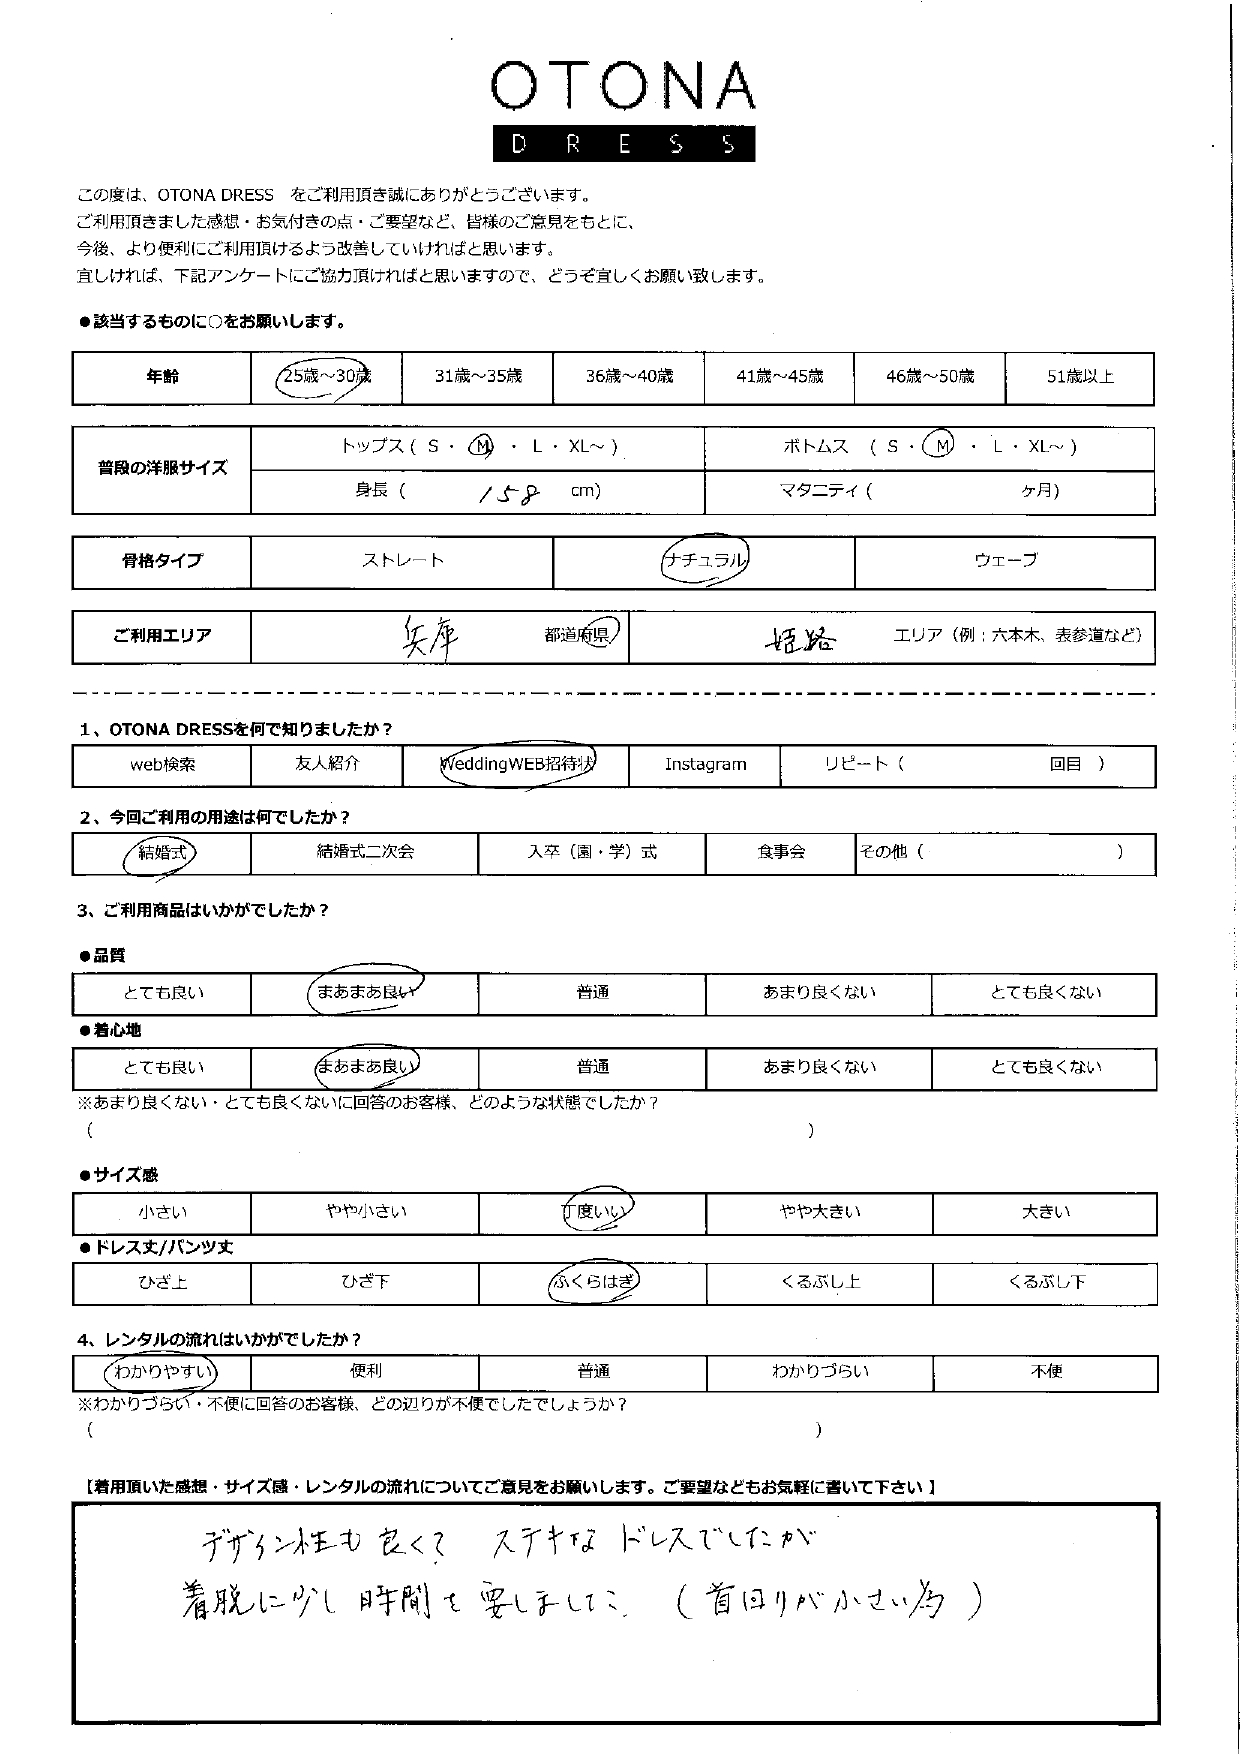 OTONA
DRESS
この度は、OTONA DRESS をご利用頂き誠にありがとうございます。
ご利用頂きました感想・お気付きの点・ご要望など、皆様のご意見をもとに、
今後、より便利にご利用頂けるよう改善していければと思います。
宜しければ、下記アンケートにご協力頂ければと思いますので、どうぞ宜しくお願い致します。
●該当するものに○をお願いします。
年齢 25歳～30歳 31歳～35歳 36歳～40歳 41歳～45歳 46歳～50歳 51歳以上
普段の洋服サイズ トップス ( S ・ M ・ L ・ XL～ ) ボトムス ( S ・ M ・ L ・ XL～ )
身長 ( 158 cm) マタニティ ( ケ月)
骨格タイプ ストレート ナチュラル ウェーブ
ご利用エリア 兵庫 都道府県 姫路 エリア（例；六本木、表参道など）
1、OTONA DRESSを何で知りましたか？
web検索 友人紹介 WeddingWEB招待状 Instagram リピート（ 回目 ）
2、今回ご利用の用途は何でしたか？
結婚式 結婚式二次会 入卒（園・学）式 食事会 その他（ ）
3、ご利用商品はいかがでしたか？
●品質
とても良い まあまあ良い 普通 あまり良くない とても良くない
●着心地
とても良い まあまあ良い 普通 あまり良くない とても良くない
※あまり良くない・とても良くないに回答のお客様、どのような状態でしたか？
（ ）
●サイズ感
小さい やや小さい 丁度いい やや大きい 大きい
●ドレス丈/パンツ丈
ひざ上 ひざ下 ふくらはぎ くるぶし上 くるぶし下
4、レンタルの流れはいかがでしたか？
わかりやすい 便利 普通 わかりづらい 不便
※わかりづらい・不便に回答のお客様、どの辺りが不便でしたでしょうか？
（ ）
【着用頂いた感想・サイズ感・レンタルの流れについてご意見をお願いします。ご要望などもお気軽に書いて下さい 】
デザイン性も良くて ステキな ドレスでしたが
着脱に少し時間を要しました。（首回りが小さい為）